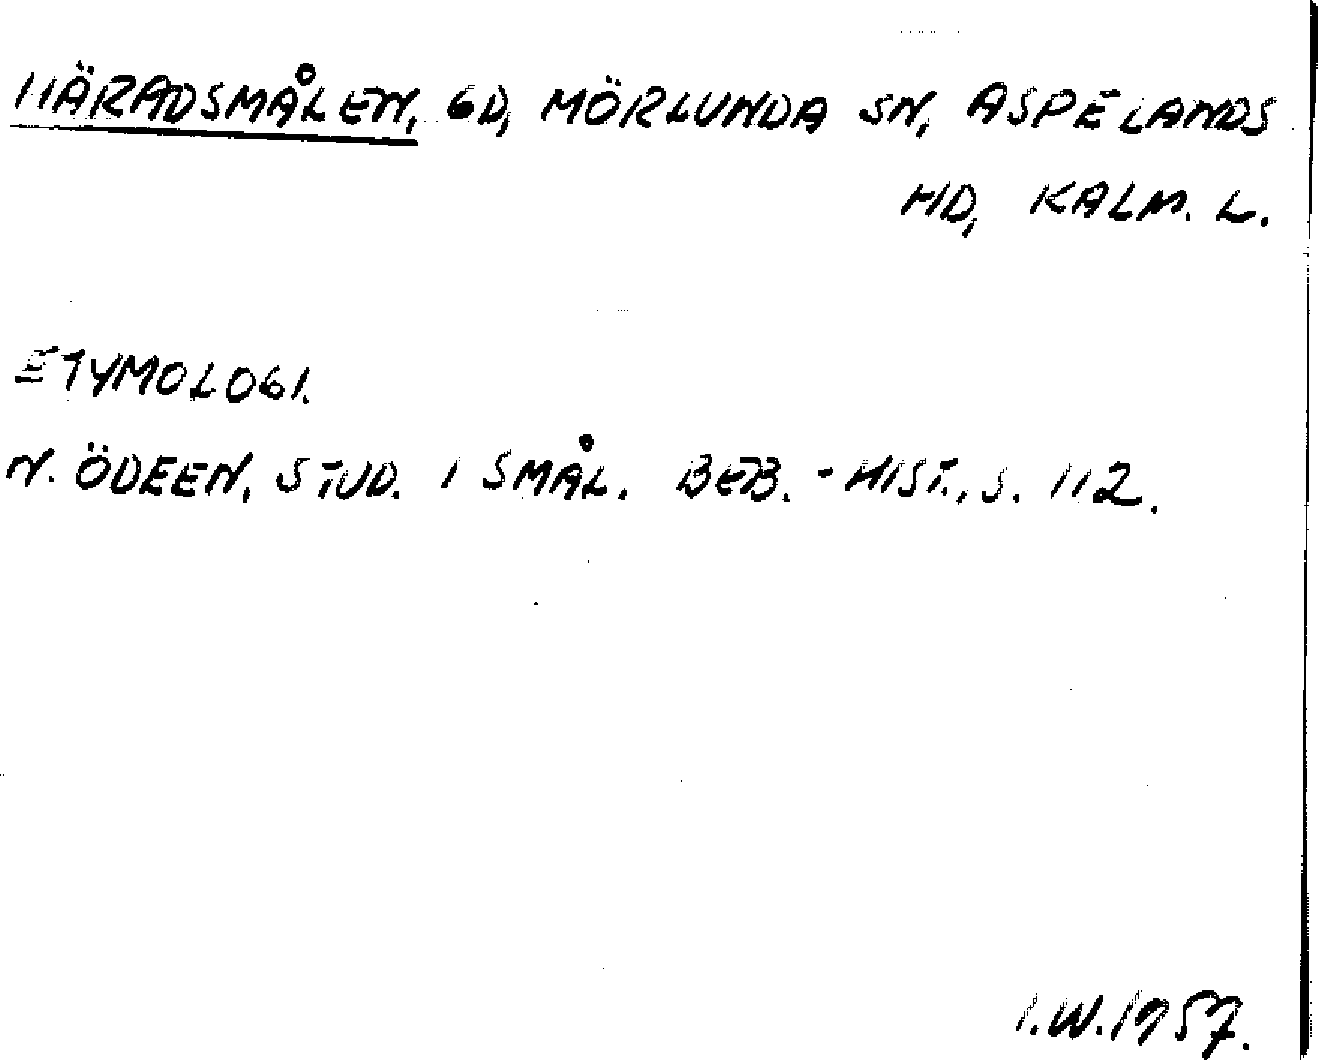 HÄRADSMÅLEN, GD, MÖRLUNDA SN, ASPELANDS
HD, KALM. L.
ETYMOLOGI.
N. ÖDEEN, STUD. I SMÅL. BEB.-HIST., S. 112.
I.W. 1957.